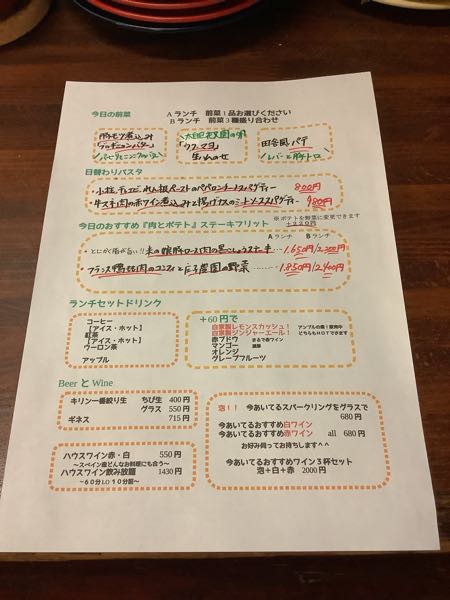 今日の前菜
Aランチ 前菜1品お選びください
Bランチ 前菜3種盛り合わせ
豚モツ煮込み
ブルギニョンバター
太田 農園の卵
「ウフ・マヨ」
生ハムのせ
田舎風パテ
レバーと豚トロ
日替わりパスタ
・小柱、ほうれん根ペーストのペペロンチーノスパゲティー 800円
・牛スネ肉の赤ワイン煮込みと揚げナスのミートソーススパゲティー 980円
今日のおすすめ『肉とポテト』ステーキフリット
※ポテトを野菜に変更できます
+220円
Aランチ Bランチ
・とにかく脂が旨い!! 米の娘豚ロース肉の黒こしょうステーキ… 1.650円 2.200円
・フランス鴨もも肉のコンフィと 農園の野菜……… 1.850円 2.400円
ランチセットドリンク
コーヒー
【アイス・ホット】
紅茶
【アイス・ホット】
ウーロン茶
アップル
+60円で
自家製レモンスカッシュ!
自家製ジンジャーエール!
アンプルの森!販売中
どちらもHOTできます
赤ブドウ まるで赤ワイン
マンゴー 濃厚
オレンジ
グレープフルーツ
Beer と Wine
キリン一番搾り生 ちび生 400円
グラス 550円
ギネス 715円
ハウスワイン赤・白 550円
~スペイン産どんなお料理にも合う~
ハウスワイン飲み放題 1430円
~60分LO10分前~
泡!! 今あいてるスパークリングをグラスで
680円
今あいてるおすすめ白ワイン
今あいてるおすすめ赤ワイン all 680円
お好み伺ってお持ちします^^
今あいてるおすすめワイン3杯セット
泡+白+赤 2000円